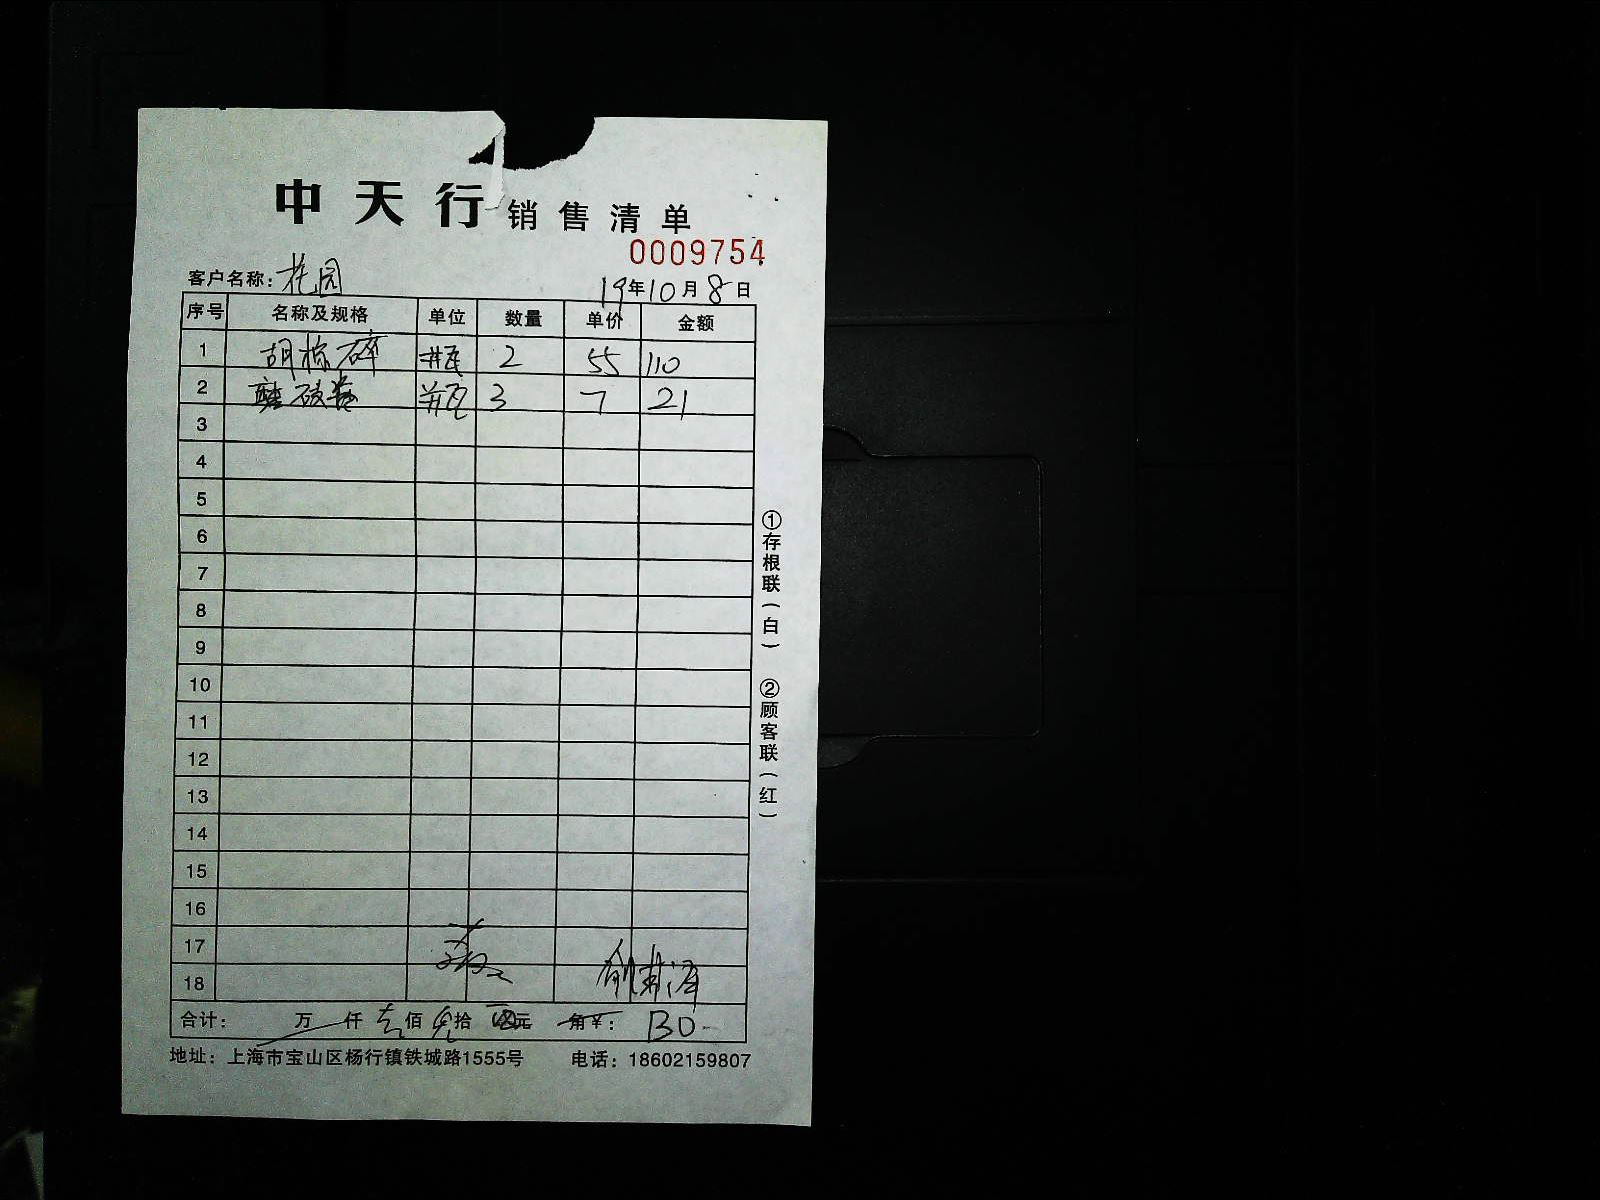 中天行 销售清单
0009754
客户名称: 花园 19年10月8日
序号 名称及规格 单位 数量 单价 金额
1 胡椒碎 瓶 2 55 110
2 瓶 3 7 21
3
4
5
6
7
8
9
10
11
12
13
14
15
16
17
18
合计: 万 仟 佰 拾 元 角 ¥: 130-
地址: 上海市宝山区杨行镇铁城路1555号 电话: 18602159807
①存根联(白) ②顾客联(红)